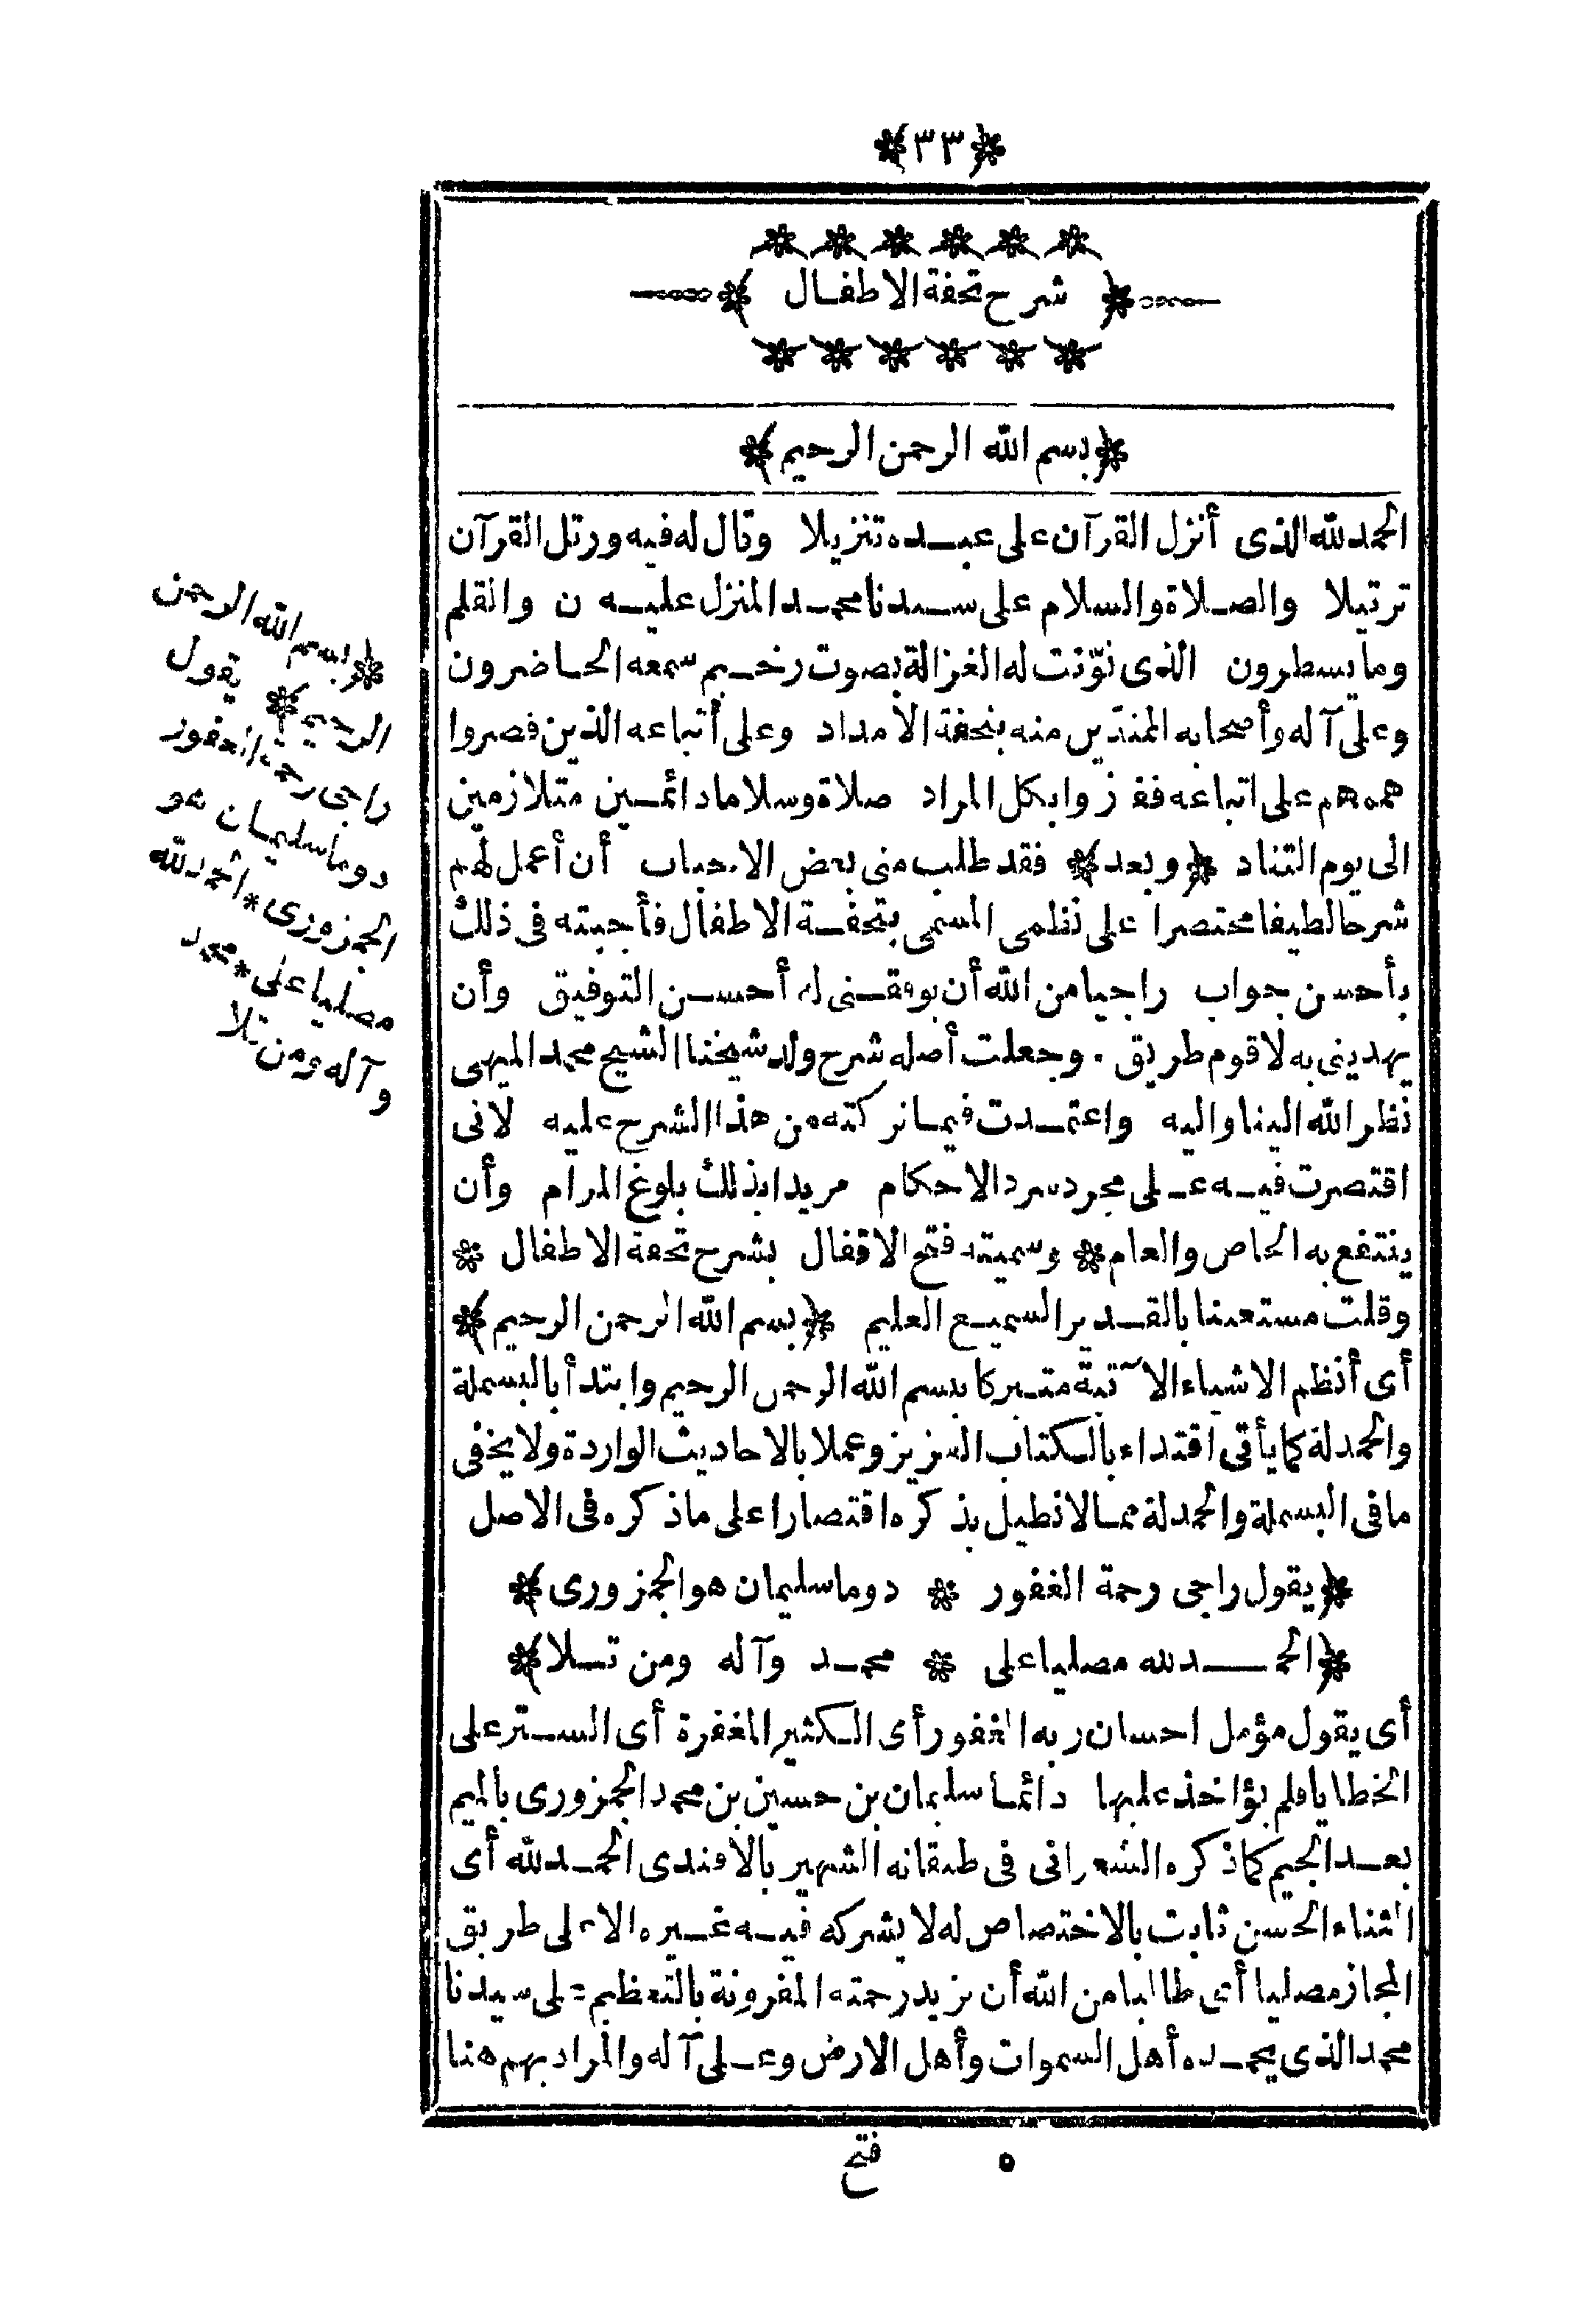 ﴿٣٣﴾
﴿ شرح تحفة الاطفال ﴾
﴿بسم الله الرحمن الرحيم﴾
الحمد لله الذى أنزل القرآن على عبده تنزيلا وقال له فيه ورتل القرآن
ترتيلا والصلاة والسلام على سيدنا محمد المنزل عليه ن والقلم
وما يسطرون الذى نوّنت له الغزالة بصوت رخيم سمعه الحاضرون
وعلى آله وأصحابه المنتدين منه بتحفة الامداد وعلى أتباعه الذين قصروا
هممهم على اتباعه ففازوا بكل المراد صلاة وسلاما دائمين متلازمين
الى يوم التناد ﴿وبعد﴾ فقد طلب منى بعض الاحباب أن أعمل لهم
شرحا لطيفا مختصرا على نظمى المسمى بتحفة الاطفال فأجبته فى ذلك
بأحسن جواب راجيا من الله أن يوفقنى له أحسن التوفيق وأن
يهدينى به لاقوم طريق . وجعلت أصله شرح ولد شيخنا الشيخ محمد الميهى
نظر الله الينا واليه واعتمدت فيما تركته من هذا الشرح عليه لانى
اقتصرت فيه على مجرد سرد الاحكام مريدا بذلك بلوغ المرام وأن
ينتفع به الخاص والعام * وسميته فتح الاقفال بشرح تحفة الاطفال *
وقلت مستعينا بالقدير السميع العليم ﴿بسم الله الرحمن الرحيم﴾
أى أنظم الاشياء الآتية متبركا ببسم الله الرحمن الرحيم وابتدأ بالبسملة
والحمدلة كما يأتى اقتداء بالكتاب العزيز وعملا بالاحاديث الواردة ولا يخفى
ما فى البسملة والحمدلة مما لا نطيل بذكره اقتصارا على ما ذكره فى الاصل
﴿يقول راجى رحمة الغفور * دوما سليمان هو الجمزورى﴾
﴿الحمد لله مصليا على * محمد وآله ومن تلا﴾
أى يقول مؤمل احسان ربه الغفور أى الكثير المغفرة أى الستر على
الخطايا فلم يؤاخذ عليها دائما سليمان بن حسين بن محمد الجمزورى بالميم
بعد الجيم كما ذكره الشعرانى فى طبقاته الشهير بالافندى الحمد لله أى
الثناء الحسن ثابت بالاختصاص له لا يشركه فيه غيره الا على طريق
المجاز مصليا أى طالبا من الله أن يزيد رحمته المقرونة بالتعظيم على سيدنا
محمد الذى يحمده أهل السموات وأهل الارض وعلى آله والمراد بهم هنا
﴿بسم الله الرحمن
الرحيم﴾ يقول
راجى رحمة الغفور
دوما سليمان هو
الجمزورى * الحمد لله
مصليا على * محمد
وآله ومن تلا
٥ فتح